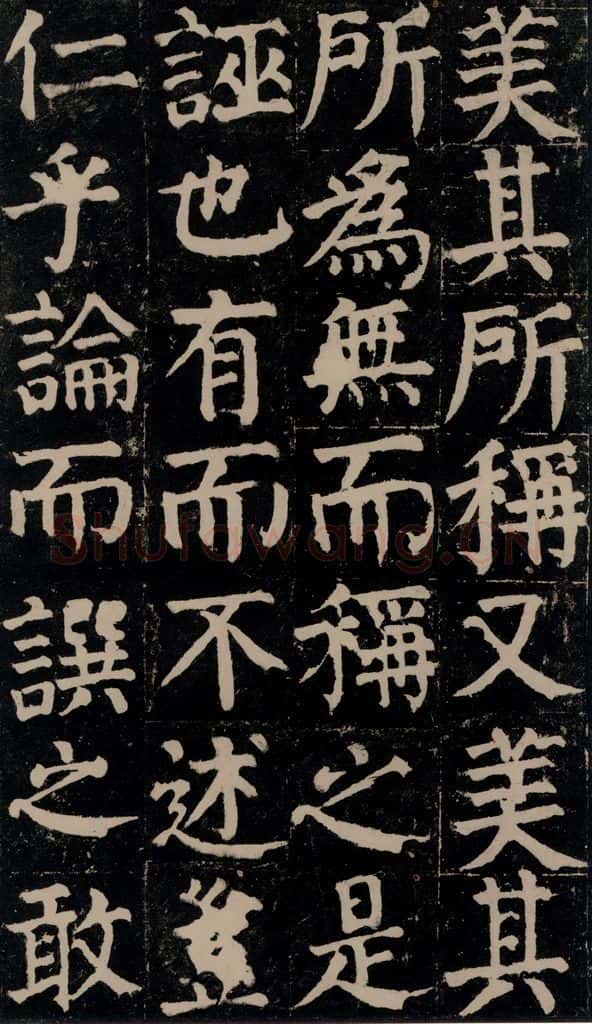 美其所稱又美其
所為無而稱之是
誣也有而不述豈
仁乎論而譔之敢
Shufawang.CN